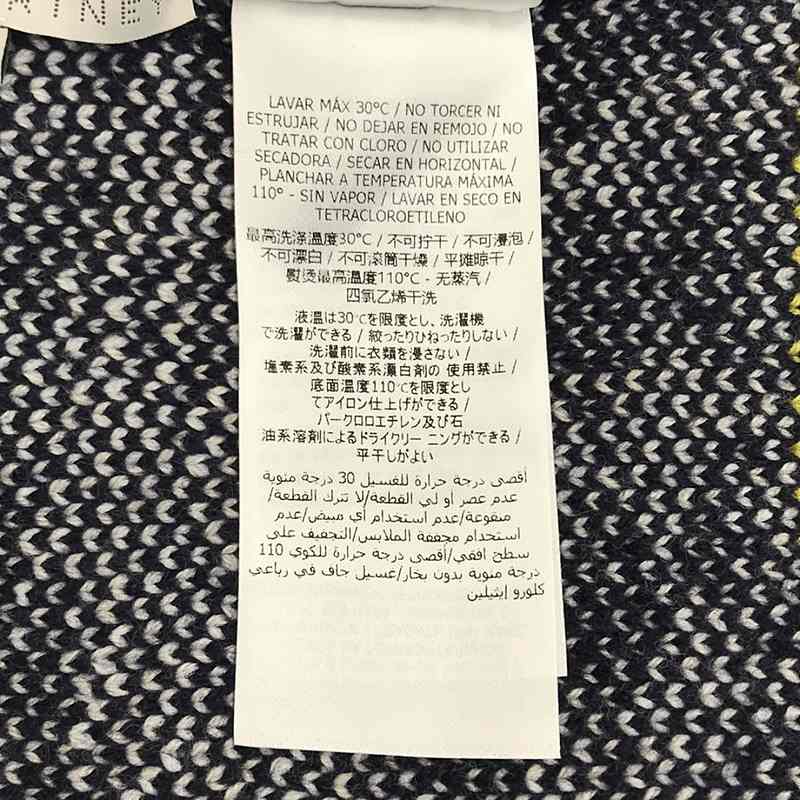 RTNEY
LAVAR MÁX 30°C / NO TORCER NI
ESTRUJAR / NO DEJAR EN REMOJO / NO
TRATAR CON CLORO / NO UTILIZAR
SECADORA / SECAR EN HORIZONTAL /
PLANCHAR A TEMPERATURA MÁXIMA
110° - SIN VAPOR / LAVAR EN SECO EN
TETRACLOROETILENO
最高洗涤温度30°C / 不可拧干 / 不可浸泡 /
不可漂白 / 不可滚筒干燥 / 平摊晾干 /
熨烫最高温度110°C - 无蒸汽 /
四氯乙烯干洗
液温は30℃を限度とし、洗濯機
で洗濯ができる / 絞ったりひねったりしない /
洗濯前に衣類を浸さない /
塩素系及び酸素系漂白剤の 使用禁止 /
底面温度110℃を限度とし
てアイロン仕上げができる /
パークロロエチレン及び石
油系溶剤によるドライクリー ニングができる /
平干しがよい
أقصى درجة حرارة للغسيل 30 درجة منوية
عدم عصر او لي القطعة/لا تترك القطعة/
منقوعة/عدم استخدام أي مبيض/عدم
استخدام مجففة الملابس/التجفيف على
سطح افقي/أقصى درجة حرارة للكوي 110
درجة منوية بدون بخار/غسيل جاف في رباعي
كلورو إيثيلين